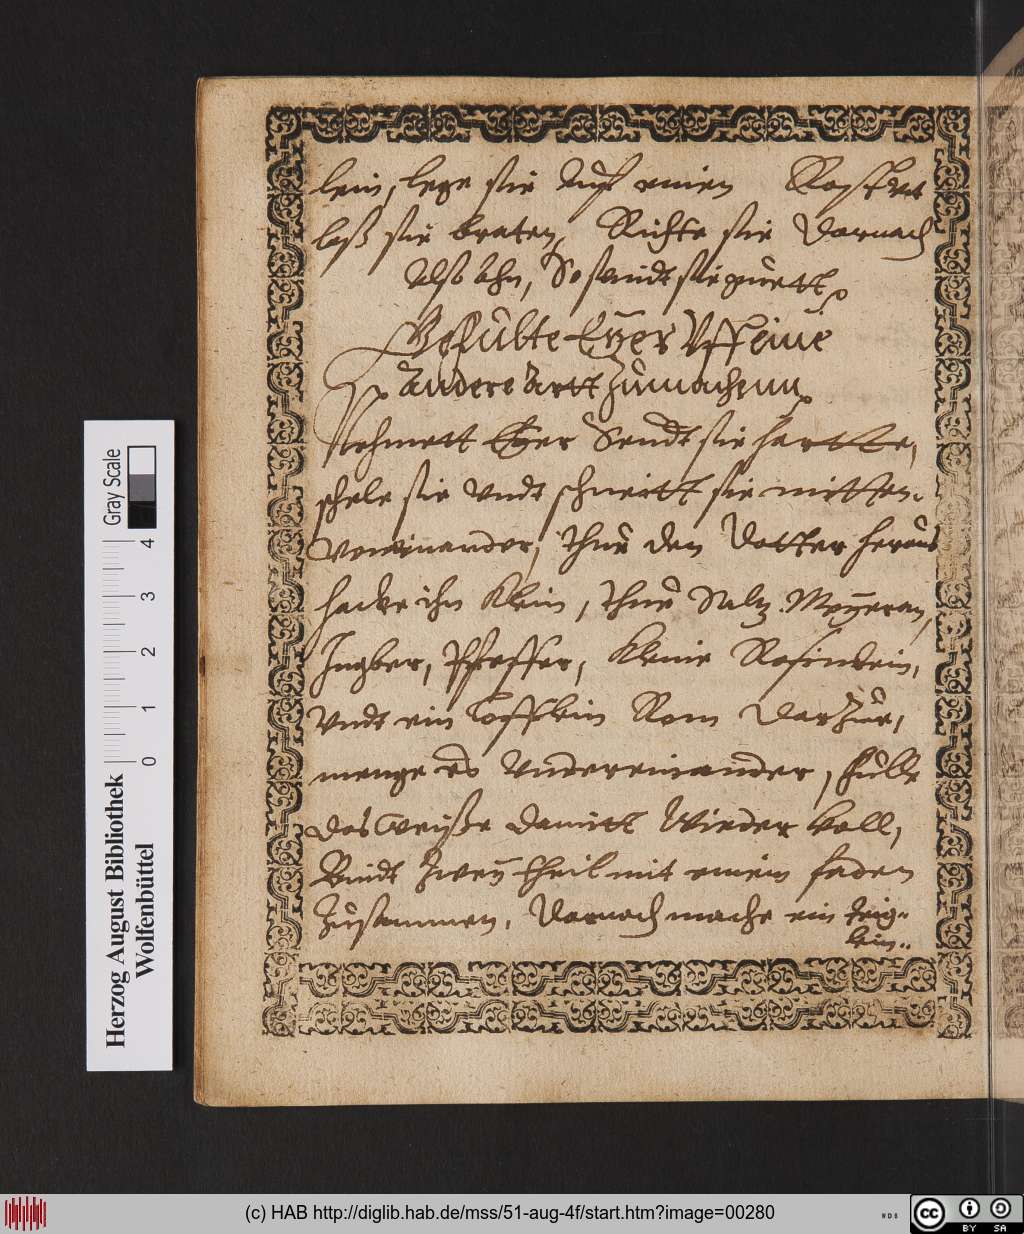 lein, lege sie auf einen Rost vnd
laß sie braten, Richte sie Darnach
Also ahn, So seindt sie guett.
Gefülte Eyer Vff eine
andere Artt Zumachenn.
Nehmett Eyer Seudt sie hartte,
schele sie Vndt schneitt sie mitten
Voneinander, thue den Dotter heraus
hacke ihn Klein, thue Saltz Meyeran,
Ingber, Pfeffer, kleine Rosinlein,
Vndt ein Löfflein Rom Darzue,
menge es Vndereinander, fülle
das Weyße damitt Wieder voll,
Bindt Zwey theil mit einem faden
Zusammen, Darnach mache ein teig-
lein..
Gray Scale
0 1 2 3 4
Herzog August Bibliothek
Wolfenbüttel
(c) HAB http://diglib.hab.de/mss/51-aug-4f/start.htm?image=00280
WDB
cc BY SA